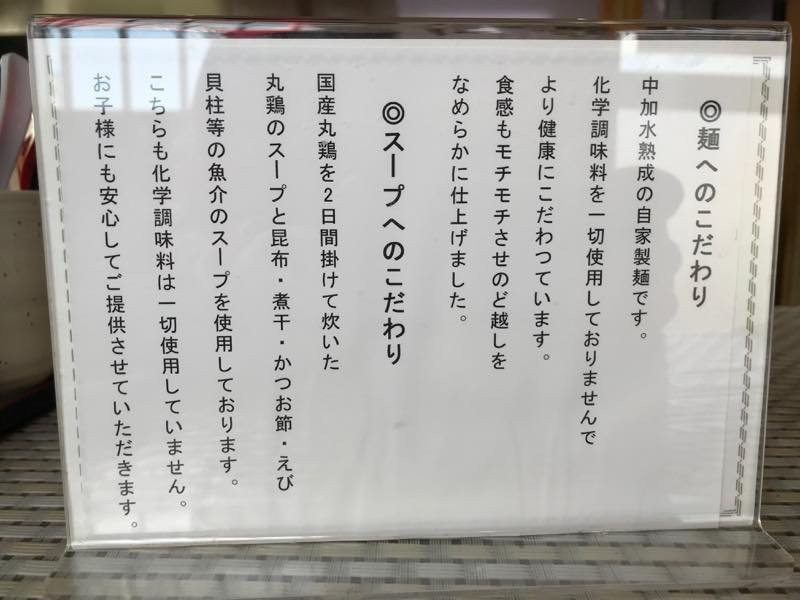 ◎麺へのこだわり
中加水熟成の自家製麺です。
化学調味料を一切使用しておりませんで
より健康にこだわつています。
食感もモチモチさせのど越しを
なめらかに仕上げました。
◎スープへのこだわり
国産丸鶏を2日間掛けて炊いた
丸鶏のスープと昆布・煮干・かつお節・えび
貝柱等の魚介のスープを使用しております。
こちらも化学調味料は一切使用していません。
お子様にも安心してご提供させていただきます。